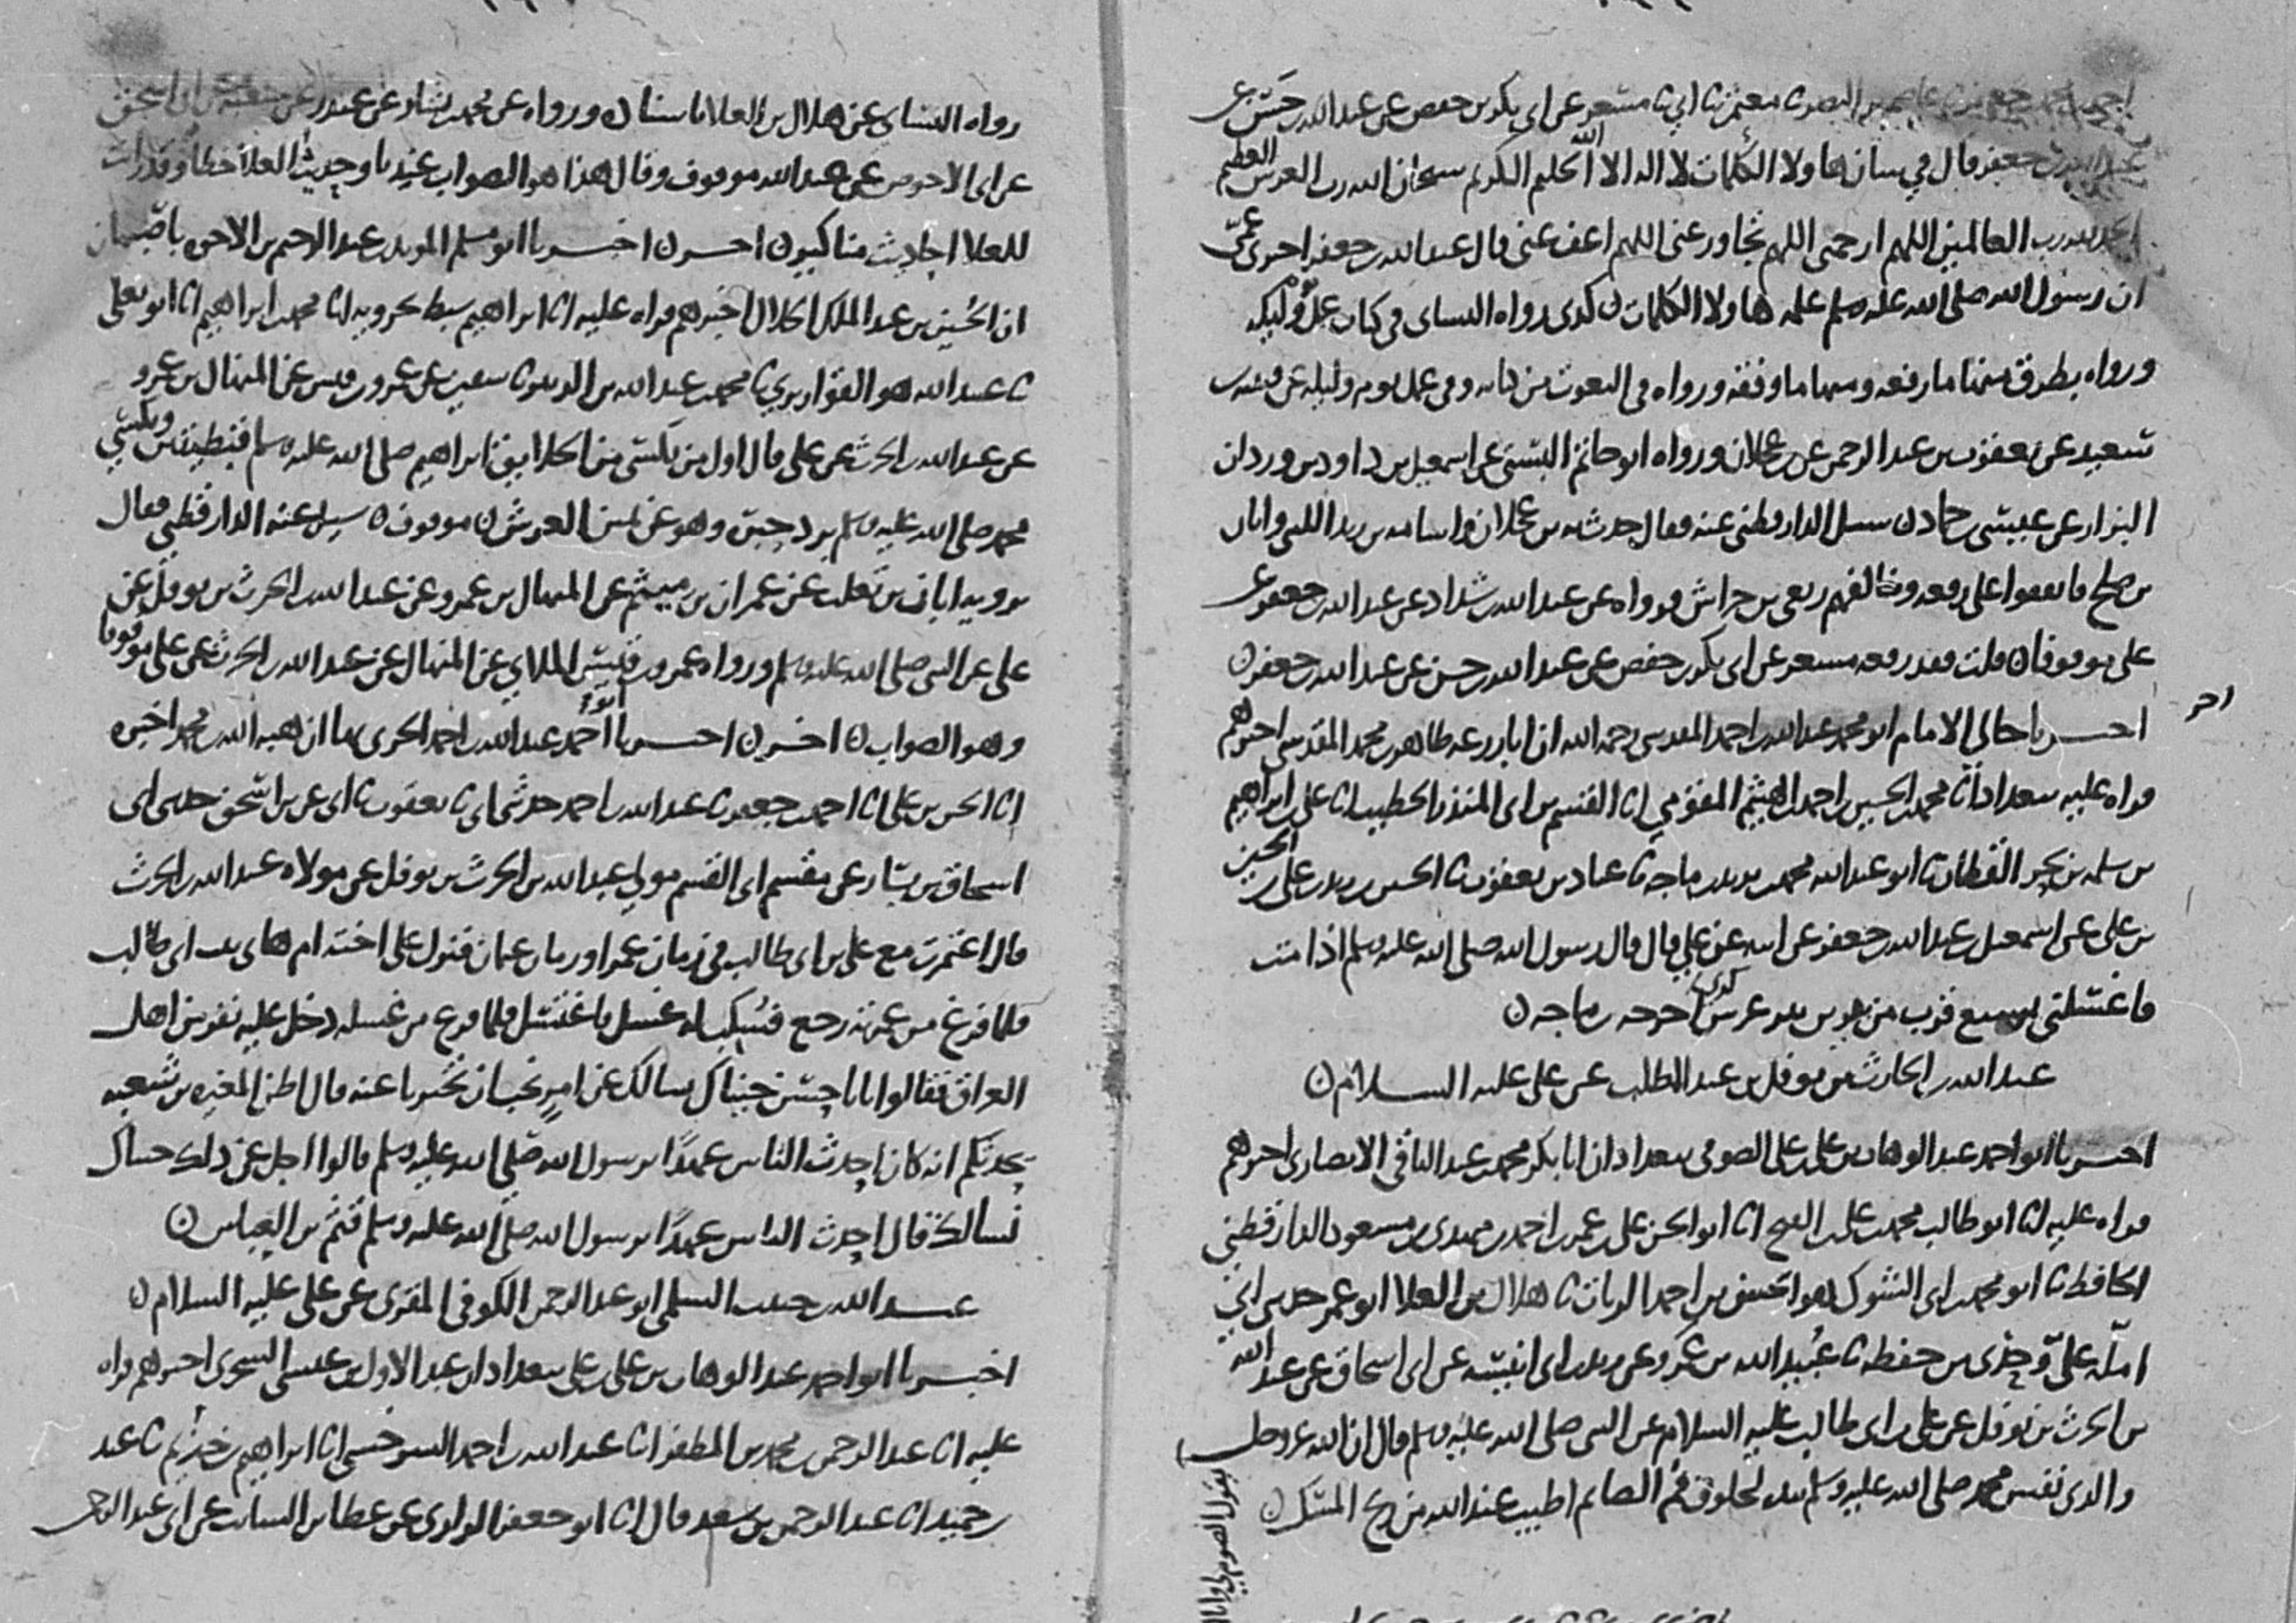 احمد بن جعفر بن عاصم بن النضر نا معتمر نا ابي نا مسعر عن ابي بكر بن حفص عن عبد الله بن حسن عن
عبد الله بن جعفر قال في شان هاولا الكلمات لا اله الا الله الحليم الكريم سبحان الله رب العرش العظيم
الحمد لله رب العالمين اللهم ارحمني اللهم تجاوز عني اللهم اعف عني قال عبد الله بن جعفر اخبرني عمي
ان رسول الله صلى الله عليه وسلم علمه هاولا الكلمات ن كذي رواه النساي في كتاب عمل يوم وليله
ورواه بطرق منها ما رفعه ومنها ما وقفه ورواه في النعوت من كتابه وفي عمل يوم وليله عن قتيبه بن
سعيد عن يعقوب بن عبد الرحمن عن بن عجلان ورواه ابو حاتم البستي عن اسمعيل بن داود بن وردان
البزار عن عيسى بن حماد ن سيل الدارقطني عنه فقال حدث به بن عجلان واسامه بن زيد الليثي وابان
بن صالح فاتفقوا على رفعه وخالفهم ربعي بن حراش فرواه عن عبد الله بن شداد عن عبد الله بن جعفر عن
علي موقوفا ن قلت فقد رفعه مسعر عن ابي بكر بن حفص عن عبد الله بن حسن عن عبد الله بن جعفر ن
اخبرنا خالي الامام ابو محمد عبد الله بن احمد المقدسي رحمه الله ان ابا زرعه طاهر بن محمد المقدسي اخبرهم
اخر
قراه عليه ببغداد انا محمد بن الحسين بن احمد بن الهيثم المقومي انا القسم بن ابي المنذر الخطيب انا علي بن ابراهيم
بن سلمه بن بحر القطان نا ابو عبد الله محمد بن يزيد بن ماجه نا عباد بن يعقوب نا الحسين بن زيد بن علي بن الحسين
بن علي عن اسمعيل بن عبد الله بن جعفر عن ابيه عن علي قال قال رسول الله صلى الله عليه وسلم اذا مت
فاغسلني بسبع قرب من بير بير غرس كذي اخرجه بن ماجه ن
عبد الله بن الحارث بن نوفل بن عبد المطلب عن علي عليه السلام ن
اخبرنا ابو احمد عبد الوهاب بن علي بن علي الصوفي ببغداد ان ابا بكر محمد بن عبد الباقي الانصاري اخبرهم
قراه عليه انا ابو طالب محمد بن علي بن الفتح انا ابو الحسن علي بن عمر بن احمد بن مهدي بن مسعود الدارقطني
الحافظ نا ابو محمد بن ابي الشوك هو الحسن بن احمد الزيات نا هلال بن العلا ابو عمر حدثني ابي
املاه علي وجدي من حفظه نا عبيد الله بن عمرو عن زيد بن ابي انيسه عن ابي اسحاق عن عبد الله
بن الحرث بن نوفل عن علي بن ابي طالب عليه السلام عن النبي صلى الله عليه وسلم قال ان الله عز وجل
والذي نفس محمد صلى الله عليه وسلم بيده لخلوف فم الصايم اطيب عند الله من ريح المسك ن
رواه النساي عن هلال بن العلا باسناده ورواه عن محمد بن بشار عن غندر عن شعبه عن ابي اسحق
عن ابي الاحوص عن عبد الله موقوف وقال هذا هو الصواب عندنا وحديث العلا خطا وقد رات
للعلا احاديث مناكير ن اخر ن اخبرنا ابو مسلم المويد بن عبد الرحيم بن الاخوه باصبهان
ان الحسين بن عبد الملك الخلال اخبرهم قراه عليه انا ابراهيم سبط بحرويه انا محمد بن ابراهيم انا ابو يعلى
نا عبيد الله هو القواريري نا محمد بن عبد الله بن الزبير نا سفين عن عمرو بن قيس عن المنهال بن عمرو
عن عبد الله بن الحرث عن علي قال اول من يكسى من الخلايق ابراهيم صلى الله عليه وسلم قبطيتين ويكسى
محمد صلى الله عليه وسلم برد حبره وهو عن يمين العرش ن موقوف ن سيل عنه الدارقطني فقال
يرويه ابان بن تغلب عن عمران بن ميثم عن المنهال بن عمرو عن عبد الله بن الحرث بن نوفل عن
علي عن النبي صلى الله عليه وسلم ورواه عمرو بن قيس الملاي عن المنهال عن عبد الله بن الحرث عن علي موقوفا
وهو الصواب ن اخر ن اخبرنا ابو احمد عبد الله بن احمد الحربي بها ان هبه الله بن محمد اخبره
انا الحسن بن علي انا احمد بن جعفر نا عبد الله بن احمد حدثني ابي نا يعقوب نا ابي عن بن اسحق حدثني ابي
اسحاق بن يسار عن مقسم ابي القسم مولى عبد الله بن الحرث بن نوفل عن مولاه عبد الله بن الحرث
قال اعتمرت مع علي بن ابي طالب في زمان عمر او زمان عثمان فنزل على اخته ام هاني بنت ابي طالب
فلما فرغ من عمرته رجع فسكب له غسل فاغتسل فلما فرغ من غسله دخل عليه نفر من اهل
العراق فقالوا يابا حسن جيناك نسالك عن امر نحب ان تخبرنا عنه قال اظن المغيره بن شعبه
يحدثكم انه كان احدث الناس عهدا برسول الله صلى الله عليه وسلم قالوا اجل عن ذلك جيناك
نسالك قال احدث الناس عهدا برسول الله صلى الله عليه وسلم قثم بن العباس ن
عبد الله بن حبيب السلمي ابو عبد الرحمن الكوفي المقري عن علي عليه السلام ن
اخبرنا ابو احمد عبد الوهاب بن علي بن علي ببغداد ان عبد الاول بن عيسى السجزي اخبرهم قراه
عليه انا عبد الرحمن بن محمد بن المظفر انا عبد الله بن احمد السرخسي انا ابراهيم بن خزيم نا عبد
بن حميد انا عبد الرحمن بن سعد قال انا ابو جعفر الرازي عن عطا بن السايب عن ابي عبد الرحمن